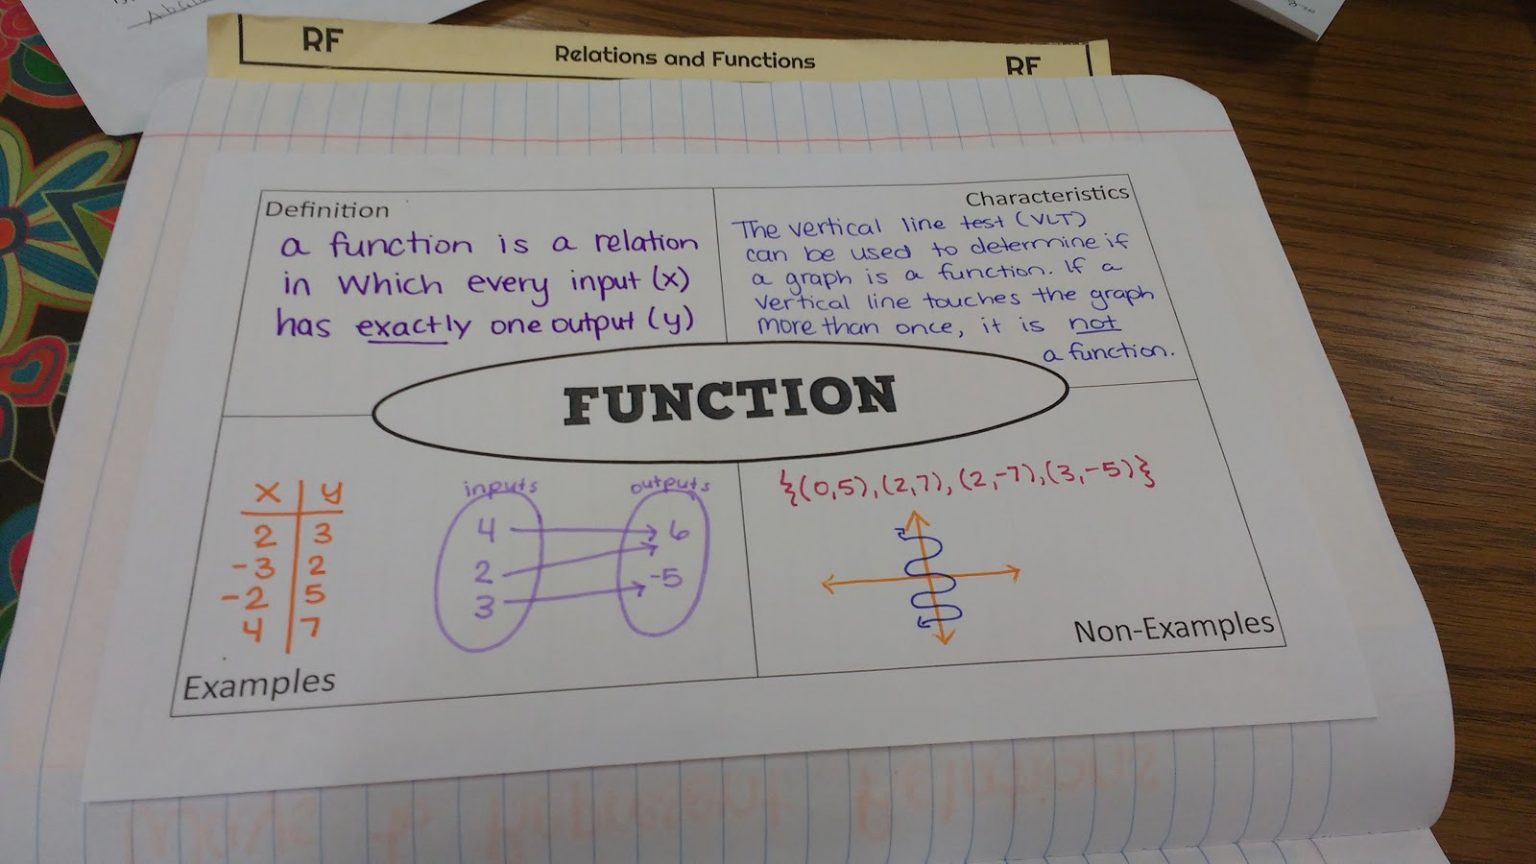 RF
Relations and Functions
RF
Definition
a function is a relation
in which every input (x)
has exactly one output (y)
Characteristics
The vertical line test (VLT)
can be used to determine if
a graph is a function. If a
vertical line touches the graph
more than once, it is not
a function.
FUNCTION
x y
2 3
-3 2
-2 5
4 7
inputs outputs
4 6
2 -5
3
Examples
{(0,5),(2,7),(2,-7),(3,-5)}
Non-Examples